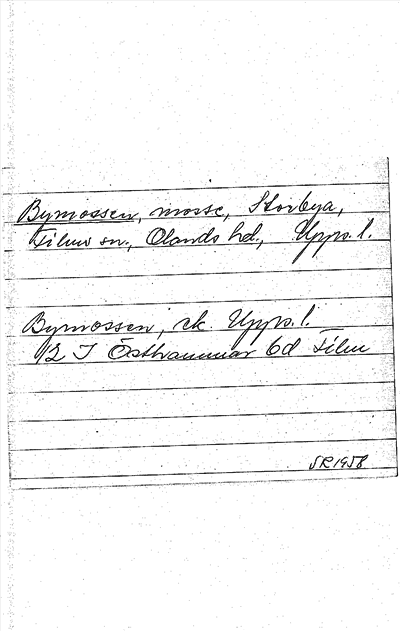 Bymossen, mosse, Storbya,
Films sn., Olands hd., Upps. l.
Bymossen, ek. Upps. l.
12 I Östhammar 6d Film
SR 1958